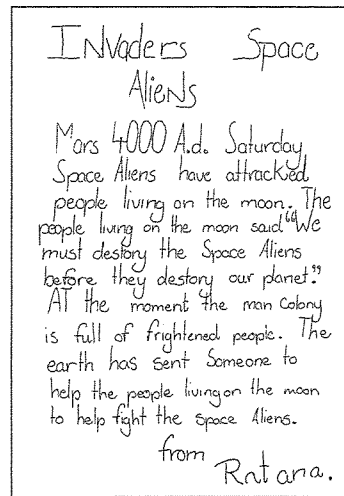 INvaders Space
Aliens
Mars 4000 A.d. Saturday
Space Aliens have attracked
people living on the moon. The
people living on the moon said "We
must destory the Space Aliens
before they destory our planet."
AT the moment the man Colony
is full of frightened people. The
earth has sent Someone to
help the people living on the moon
to help fight the Space Aliens.
from
Ratana.